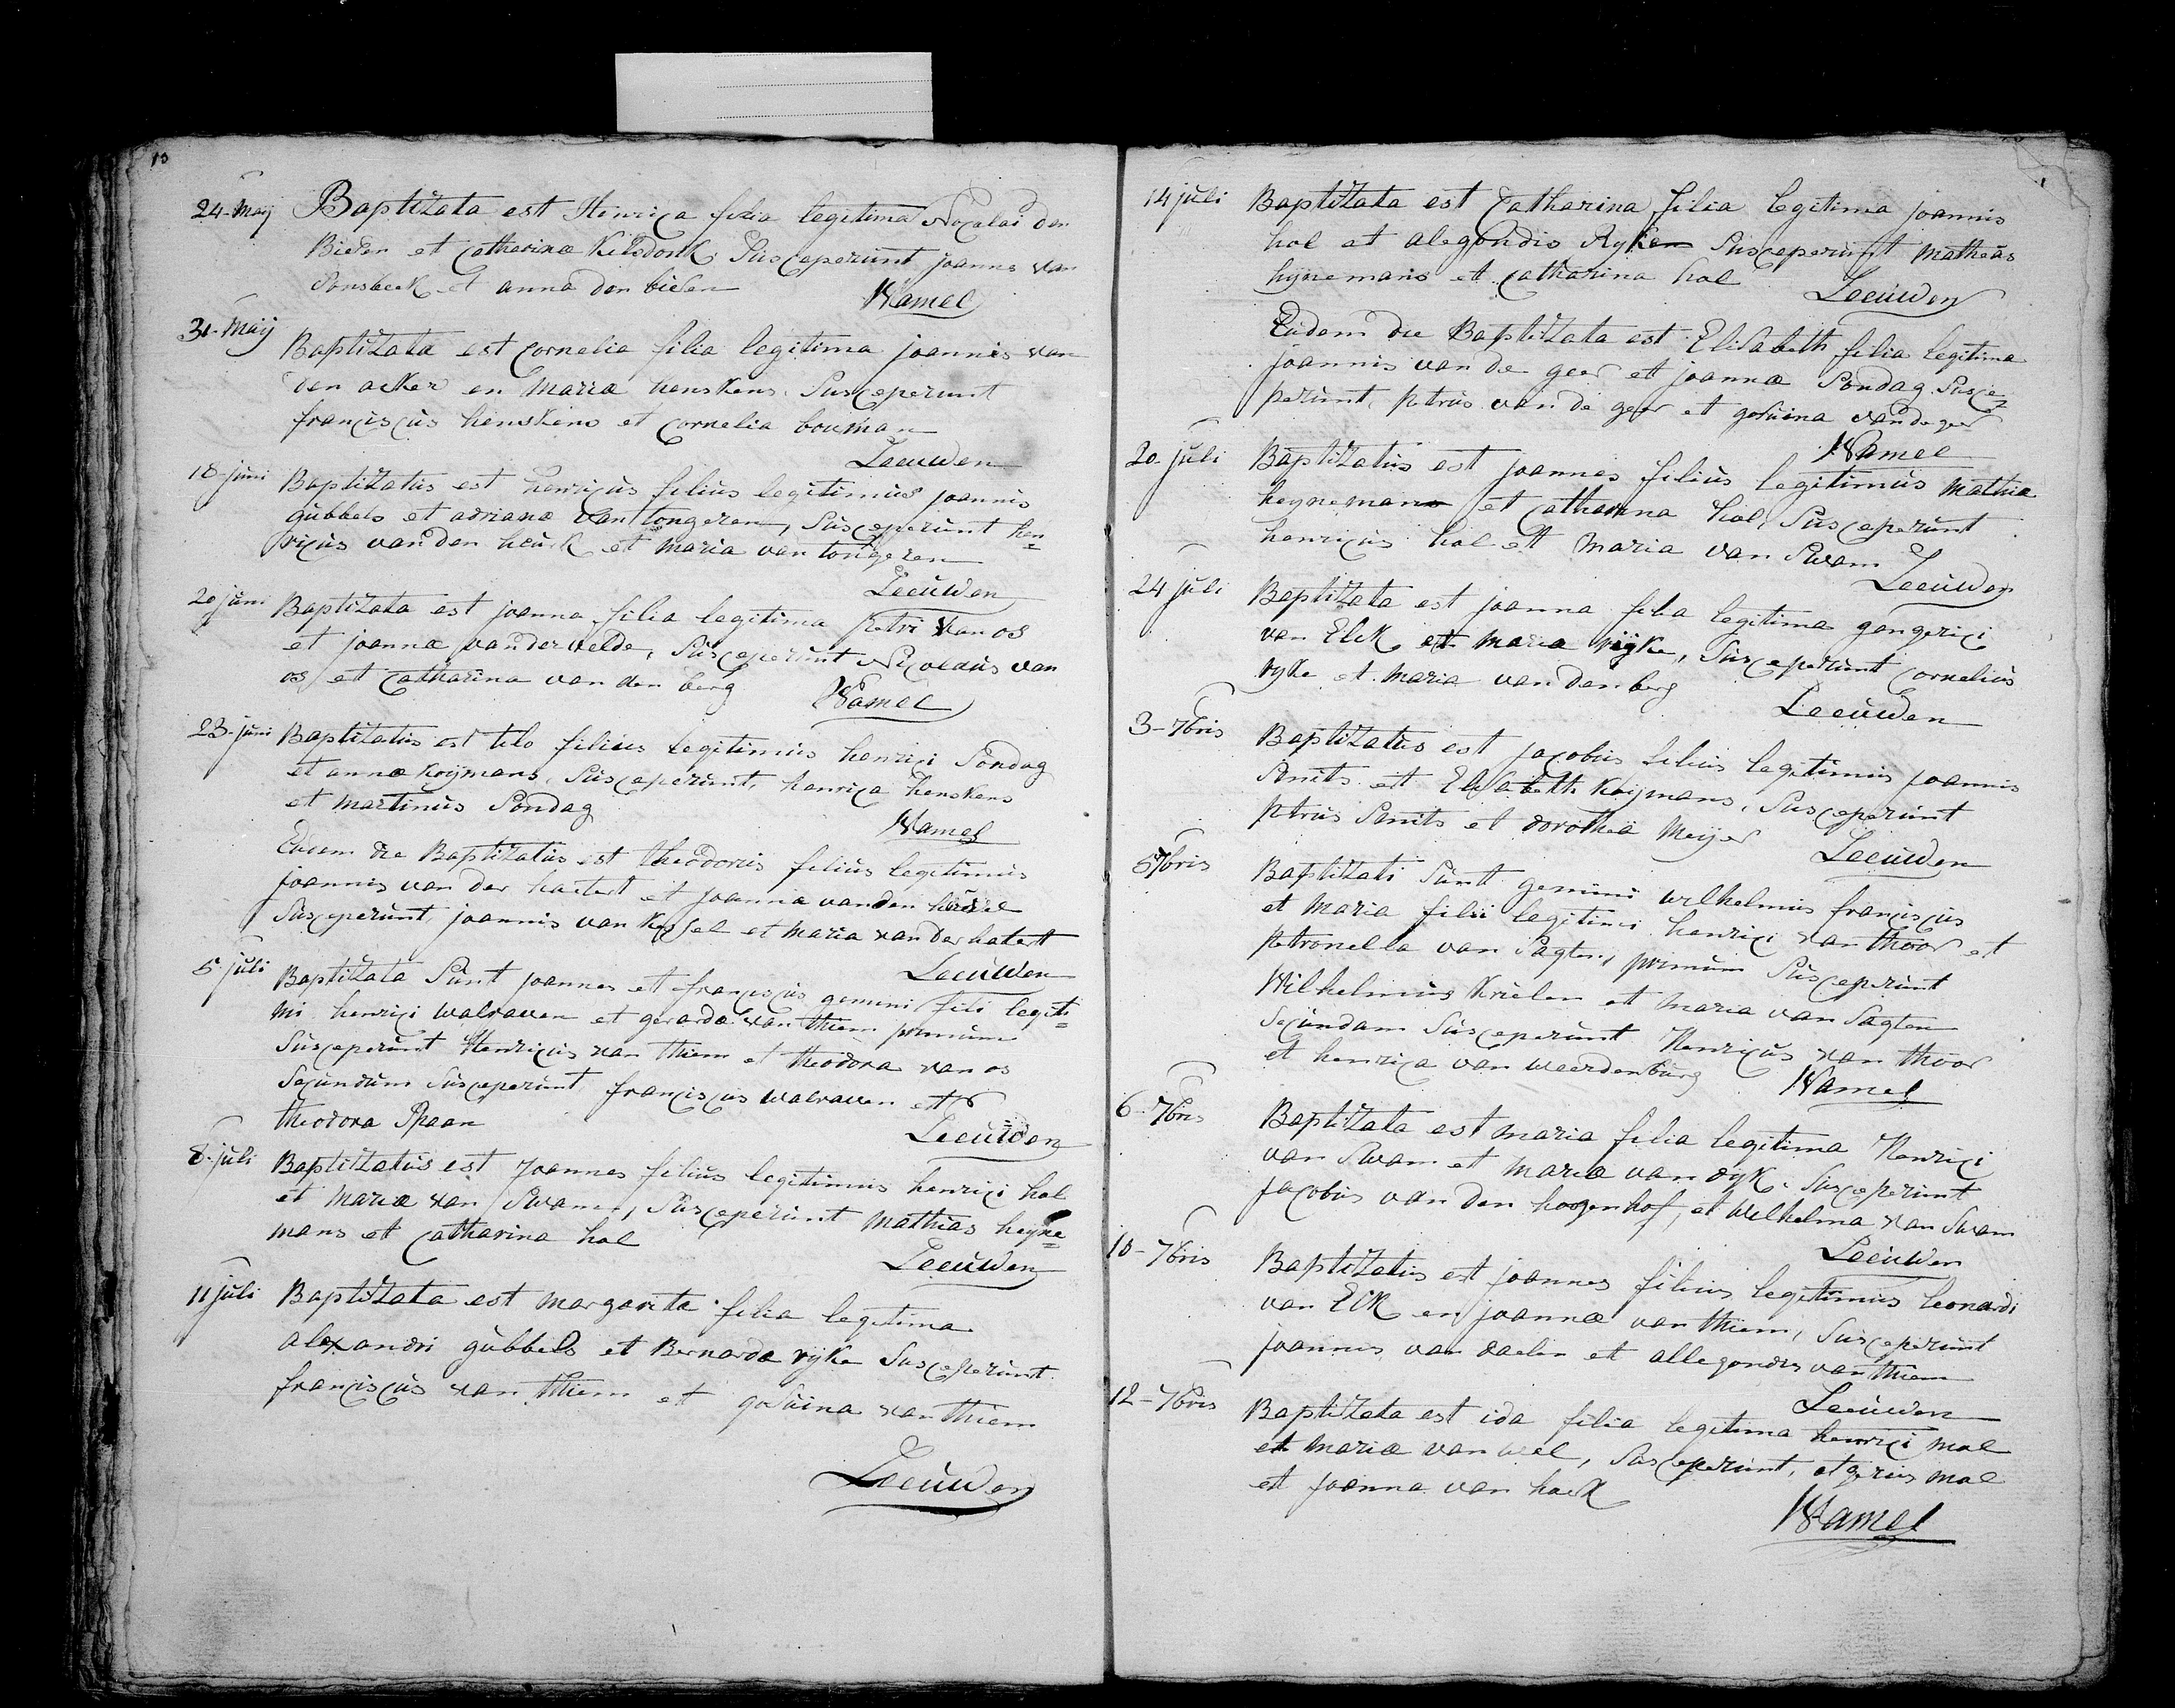 13
24-Maij Baptizata est Henrica filia legitima Nicolai den
Bieden et Catharinæ Kilsdonk. Susceperunt joannes van
Sonsbeek et anna den bielen
Wamel
31-Maij
Baptizata est Cornelia filia legitima joannis van
den acker en Mariæ henskens. Susceperunt
franciscus henskens et Cornelia bouman
Leeuwen
18-juni Baptizatus est henricus filius legitimus joannis
gubbels et adrianæ van tongeren, Susceperunt hen=
ricus van den heuk et maria van tongeren
Leeuwen
20 juni Baptizata est joanna filia legitima Petri van os
et joannæ van der velde, Susceperunt Nicolaus van
os et Catharina van den berg Wamel
23-juni Baptizatus est tilo filius legitimus henrici Sondag
et annæ koijmans, Susceperunt, henrica henskens
et martinus Sondag
Wamel
Eadem die Baptizatus est theodorus filius legitimus
joannis van der hatert et joannæ van den
Susceperunt, joannis van Kessel et maria van der hatert
Leeuwen
5 juli Baptizata Sunt joannes et franciscus gemini fili legiti=
mi henrici walraven et gerardæ van thiem primum
Susceperunt Henricus van thiem et theodora van os
Secundum Susceperunt franciscus walraven et
theodora Spaan
Leeuwen
8-juli Baptizatus est Joannes filius legitimus henrici hol
et mariæ van Swam, Susceperunt Mathias heyne=
mans et Catharina hol
Leeuwen
11 juli Baptizata est margarita filia legitima
alexandri gubbels et Bernarda ryke Susceperunt
franciscus van thiem et gosuina van thiem
Leeuwen
14 juli Baptizata est Catharina filia legitima joannis
hol et alegondis Ryken Susceperunt matheas
hijnemans et Catharina hol Leeuwen
Eadem die Baptizata est Elisabeth filia legitima
joannis van de geer et joannæ Sondag Susce=
perunt, petrus van de geer et gosuina van de geer
Wamel
20-juli Baptizatus est joannes filius legitimus mathiæ
heynemans et Catharina hol, Susceperunt
henricus hol et maria van Swam
Leeuwen
24 juli Baptizata est joanna filia legitima gengerici
van Elck et maria rijke, Susceperunt Cornelius
ryke et maria van den berg
Leeuwen
3-7bris Baptizatus est jacobus filius legitimus joannis
Smits et Elisabeth koijmans, Susceperunt
petrus Smits et dorothea Meijer Leeuwen
5 7bris Baptizati Sunt gemini wilhelmus franciscus
et maria filii legitimi henrici van thoor et
petronella van Sagten, primum Susceperunt
Wilhelmus Krielen et maria van Sagten
Secundam Susceperunt Henricus van thoor
et henrica van weerdenburg Wamel
6-7bris Baptizata est maria filia legitima Henrici
van Swam et Mariæ van dyk. Susceperunt
jacobus van den hoogenhof, et wilhelma van Swam
Leeuwen
10-7bris Baptizatus est joannes filius legitimus leonardi
van Eck en joannæ van thiem, Susceperunt
joannes van daelen et allegondis van thiem
Leeuwen
12-7bris Baptizata est ida filia legitima henrici mol
et mariæ van wel, Susceperunt, otgerus mol
et joanna van hoek
Wamel